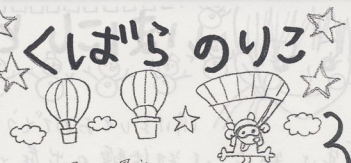 くばら のりこ